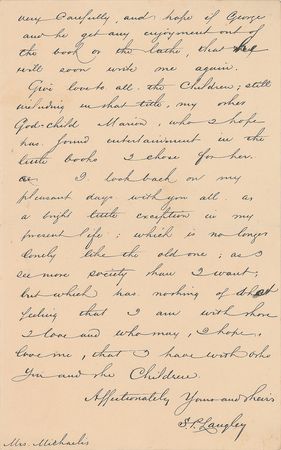 very carefully, and hope if George
and he get any enjoyment out of
the book or the lathe, that he
will soon write me again.
Give love to all the Children; still
including in that title, my other
God-child Marion, who I hope
has found entertainment in the
little books I chose for her.
I look back on my
pleasant days with you all as
a bright little exception in my
present life; which is no longer
lonely like the old one; as I
see more society than I want;
but which has nothing of that
feeling that I am with those
I love and who may, I hope,
love me, that I have with
You and the Children.
Affectionately Yours and theirs
S.P. Langley
Mrs. Michaelis